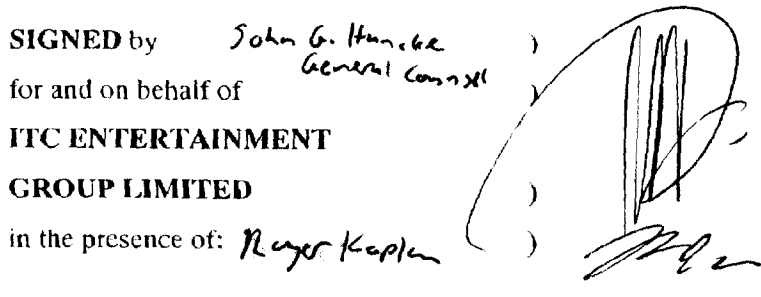 SIGNED by John G. Huncke )
General Counsel
for and on behalf of )
ITC ENTERTAINMENT
GROUP LIMITED )
in the presence of: Roger Kaplan )